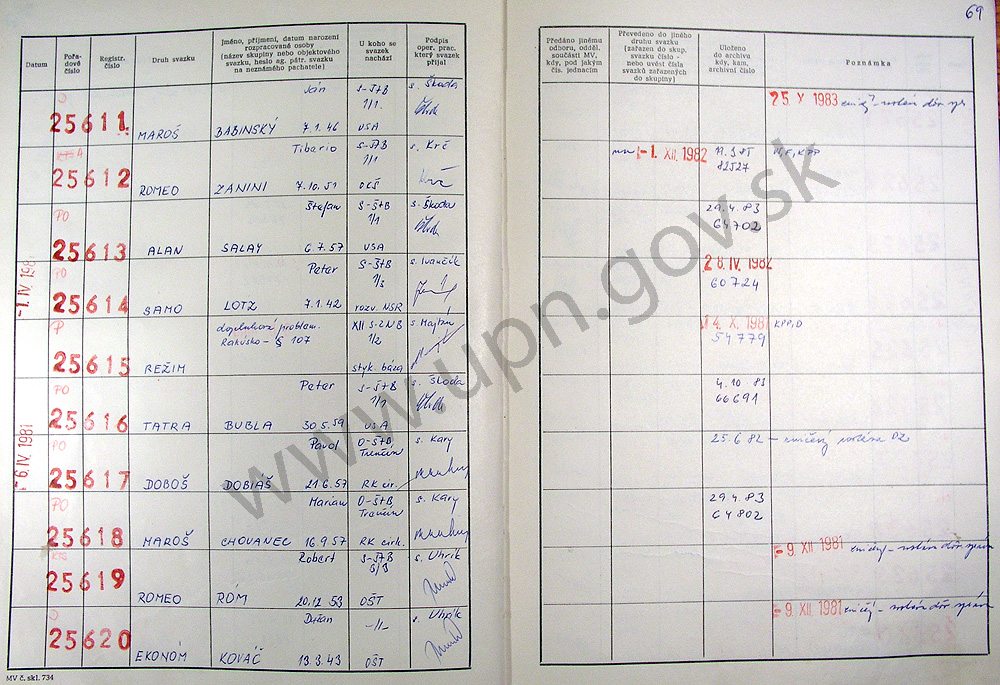 69
Datum
Pořadové číslo
Registr. číslo
Druh svazku
Jméno, příjmení, datum narození rozpracované osoby (název skupiny nebo objektového svazku, heslo ag. pátr. svazku na neznámého pachatele)
U koho se svazek nachází
Podpis oper. prac. který svazek přijal
Předáno jinému odboru, odděl. součásti MV, kdy, pod jakým čís. jednacím
Převedeno do jiného druhu svazku (zařazen do skup. svazku číslo - nebo uvést čísla svazků zařazených do skupiny)
Uloženo do archivu kdy, kam, archivní číslo
Poznámka
Ján S-ŠtB s. Škoda
25611 MAROŠ BABINSKÝ 7.1.46 1/1. USA
25 X 1983
Tiberio S-ŠTB s. Krč
25612 ROMEO ZANINI 7.10.51 1/1
-1. XII. 1982
82527
PO
Štefan S-ŠtB s. Škoda
25613 ALAN SALAY 6.7.57 1/1 USA
29.4.83
64702
-1. IV. 1981
PO
Peter S-ŠtB s. Ivančík
25614 SAMO LOTZ 7.1.42 1/3 rozv. NSR
28. IV. 1982
60724
P
doplnková problem. XII S-ZNB
Rakúsko - § 107 1/2
25615 REŽIM styk. báza
14. X. 1981 KPP,D
54779
PO
Peter S-ŠtB s. Škoda
25616 TATRA BUBLA 30.5.59 1/1 USA
4.10.83
66691
-6. IV. 1981
PO
Pavol O-ŠtB s. Kary
Trenčín
25617 DOBOŠ DOBIÁŠ 21.6.57 RK cir.
25.6.82
PO
Marian O-ŠtB s. Kary
Trenčín
25618 MAROŠ CHOVANEC 16.9.57 RK cirk.
29.4.83
64802
KTS
Robert S-ŠTB s. Uhrík
25619 ROMEO RÓM 20.12.53 OŠT
-9. XII 1981
Dušan -//- s. Uhrík
25620 EKONÓM KOVÁČ 13.3.43 OŠT
-9. XII 1981
MV č. skl. 734
www.upn.gov.sk